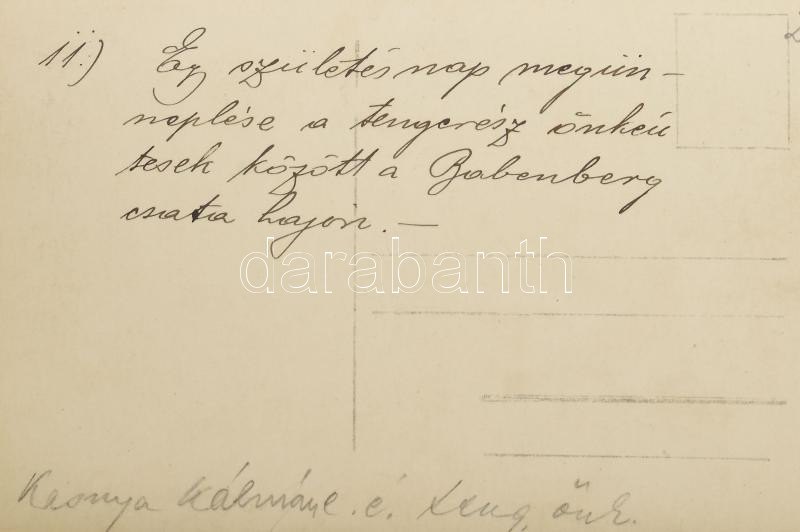 11.) Egy születésnap megün-
neplése a tengerész önkén
tesek között a Babenberg
csata hajón. —
darabanth
Kálmáné. é. teng. önk.